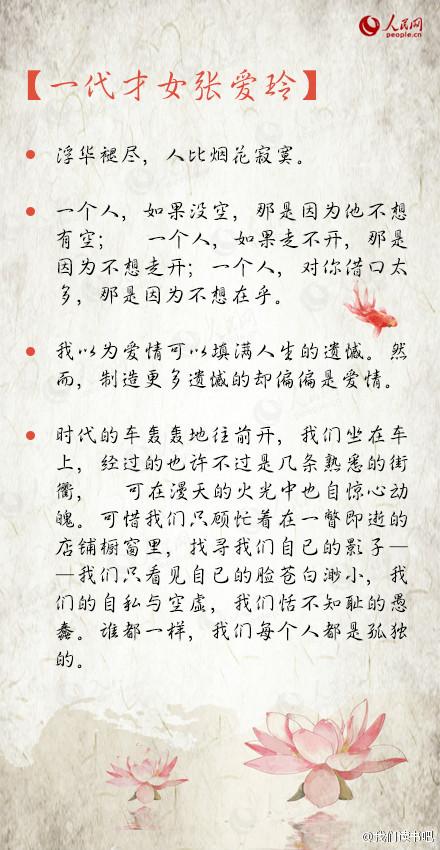 人民网
people.cn
【一代才女张爱玲】
浮华褪尽，人比烟花寂寞。
一个人，如果没空，那是因为他不想
有空； 一个人，如果走不开，那是
因为不想走开；一个人，对你借口太
多，那是因为不想在乎。
我以为爱情可以填满人生的遗憾。然
而，制造更多遗憾的却偏偏是爱情。
时代的车轰轰地往前开，我们坐在车
上，经过的也许不过是几条熟悉的街
衢， 可在漫天的火光中也自惊心动
魄。可惜我们只顾忙着在一瞥即逝的
店铺橱窗里，找寻我们自己的影子—
—我们只看见自己的脸苍白渺小，我
们的自私与空虚，我们恬不知耻的愚
蠢。谁都一样，我们每个人都是孤独
的。
@我们读书吧